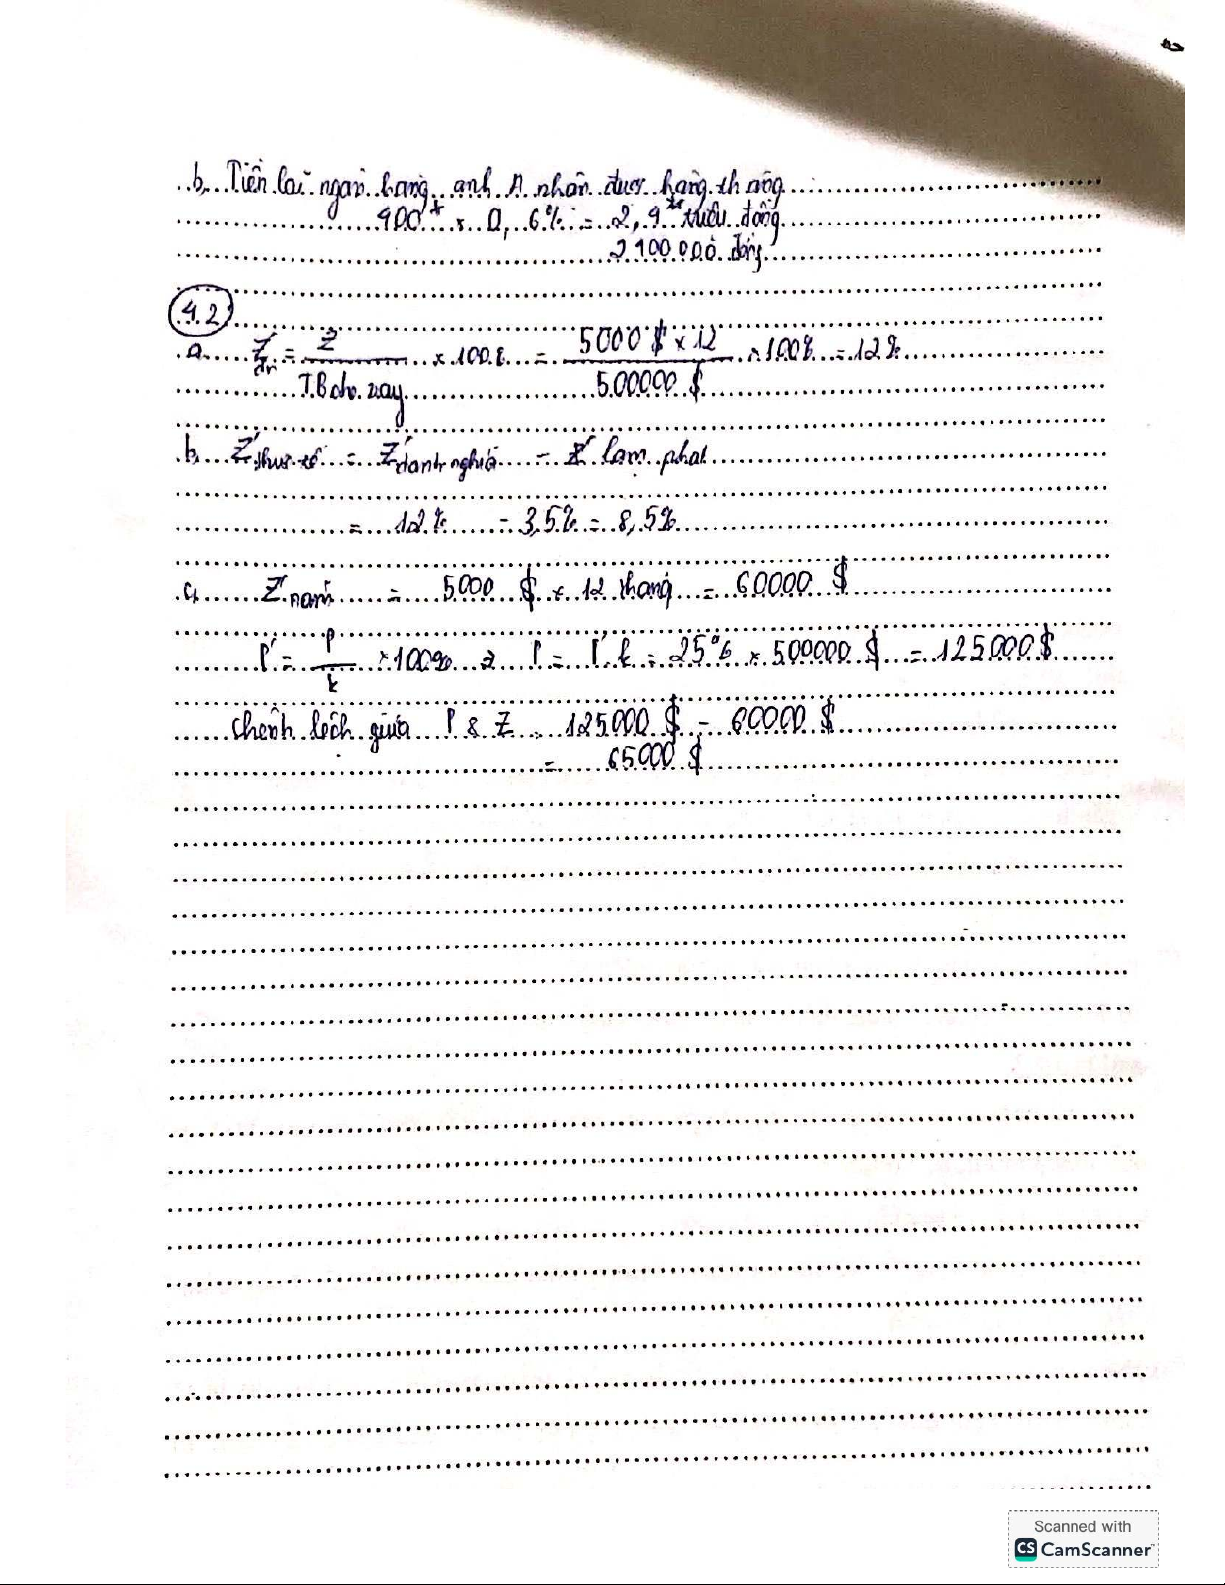 b, Tiền lãi ngân hàng anh A nhận được hàng tháng
400tr × 0,6% = 2,4 triệu đồng
2400.000 đồng
4.2
a. Z'dn = Z / TB cho vay × 100% = 5000 $ × 12 / 500000 $ × 100% = 12%
b, Z'thực tế = Z'danh nghĩa - Z' lạm phát
= 12% - 3,5% = 8,5%
c, Z năm = 5000 $ × 12 tháng = 60000 $
P' = P / k × 100% → P = P'.k = 25% × 500000 $ = 125000 $
Chênh lệch giữa P & Z : 125000 $ - 60000 $
= 65000 $
Scanned with
CS CamScanner